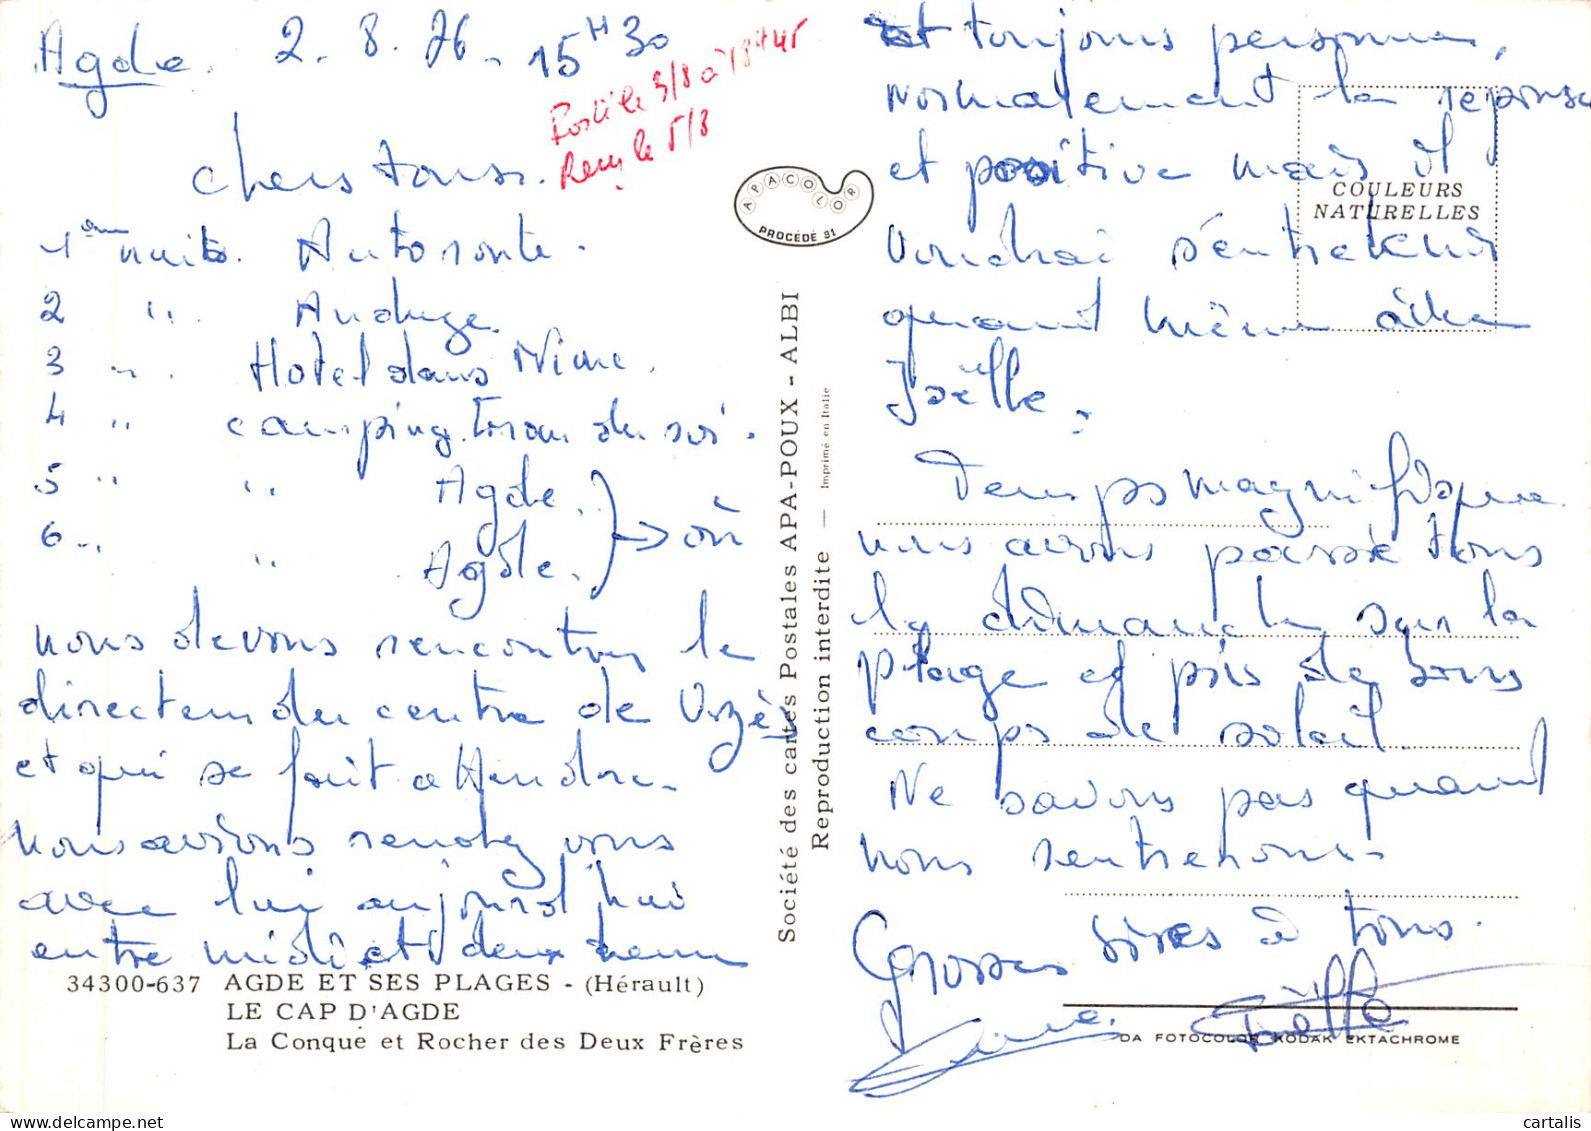 Agde. 2. 8. 76. 15H30
Posté le 3/8 à 18H45
Reçu le 5/8
Chers tous.
1ère nuits. Autoroute.
2 " . Anduze.
3 " . Hotel dans Nime.
4 " camping
5 " " Agde.
6 " " Agde. → où
nous devons rencontrer le
directeur du centre de Uzès
et qui se fait a
nous avions rendez vous
avec lui aujourd'hui
entre midi et deux heures
et toujours personne,
Normalement la réponse
et positive mais il
voudrai s'entretenir
quand même avec
Joëlle.
Temps magnifique
nous avons passé tous
le dimanche sur la
plage et pris de bons
coups de soleil.
Ne savons pas quand
nous rentrerons.
Grosses bises à tous.
Joëlle
APACOLOR
PROCÉDÉ 81
COULEURS
NATURELLES
Société des cartes Postales APA-POUX - ALBI
Reproduction interdite — Imprimé en Italie
34300-637 AGDE ET SES PLAGES - (Hérault)
LE CAP D'AGDE
La Conque et Rocher des Deux Frères
DA FOTOCOLOR KODAK EKTACHROME
cartalis